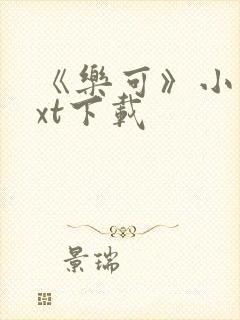 《樂可》小
xt下載
景瑞